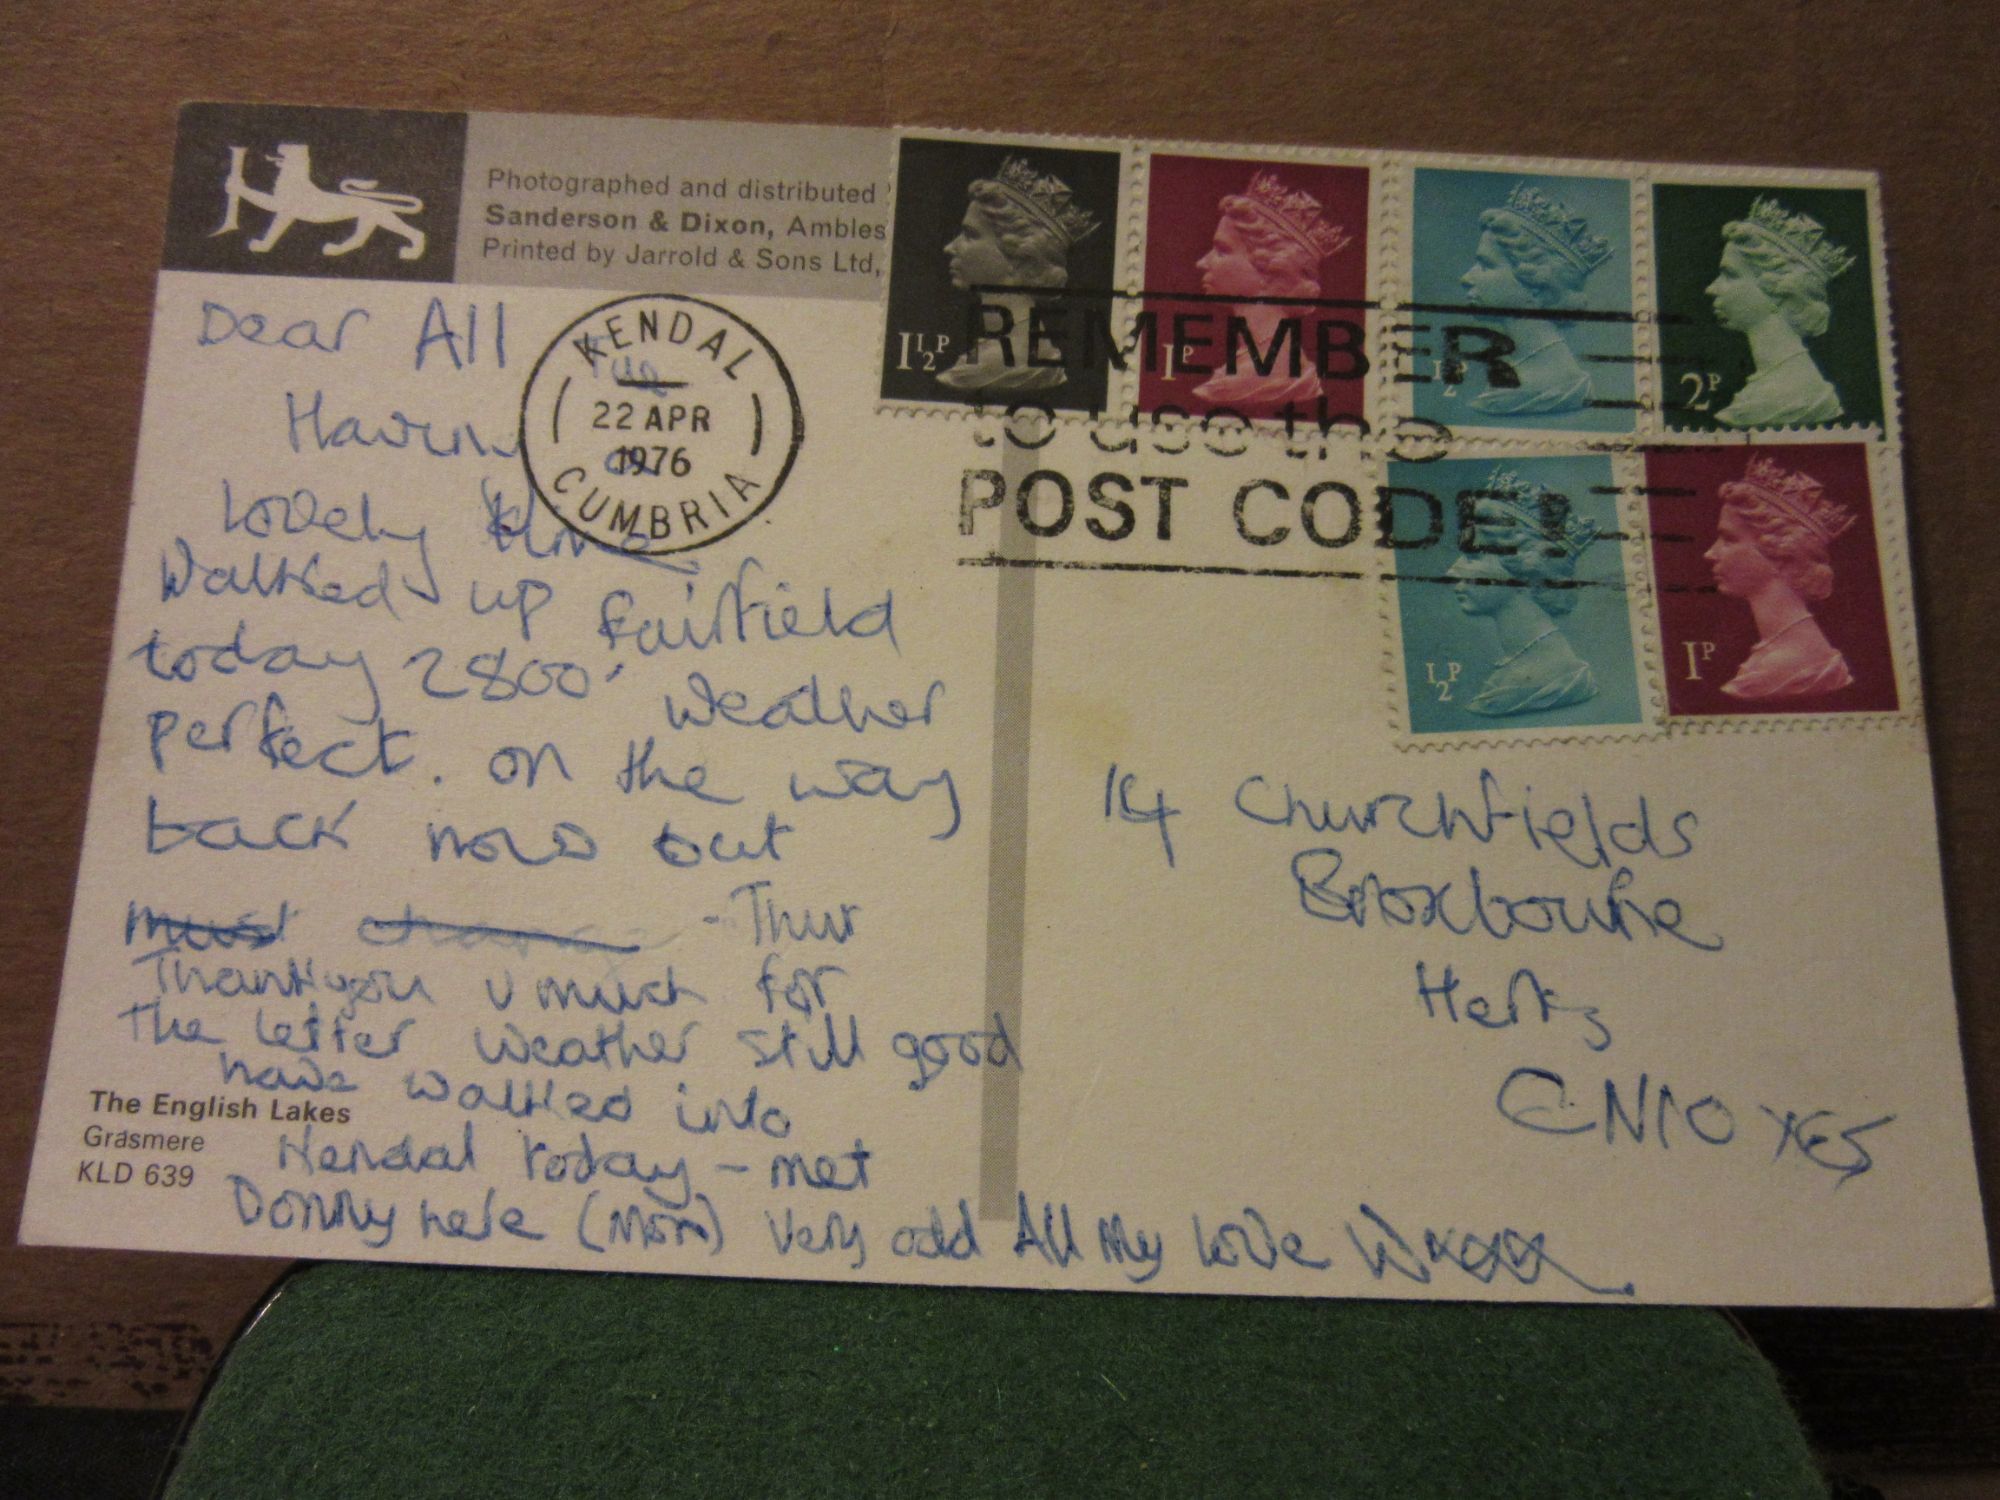 Photographed and distributed
Sanderson & Dixon, Ambles
Printed by Jarrold & Sons Ltd,
1½P
1P
½P
2P
½P
1P
KENDAL
22 APR
1976
CUMBRIA
REMEMBER
to use the
POST CODE!
Dear All
Tue
Having a
Lovely time
Walked up Fairfield
today 2800' weather
perfect. on the way
back now but
must change - Thur
Thankyou v much for
The letter weather still good
have walked into
Kendal today - met
Donny here (Mon) very odd All my love
The English Lakes
Grasmere
KLD 639
14 Churchfields
Broxbourne
Herts
EN10